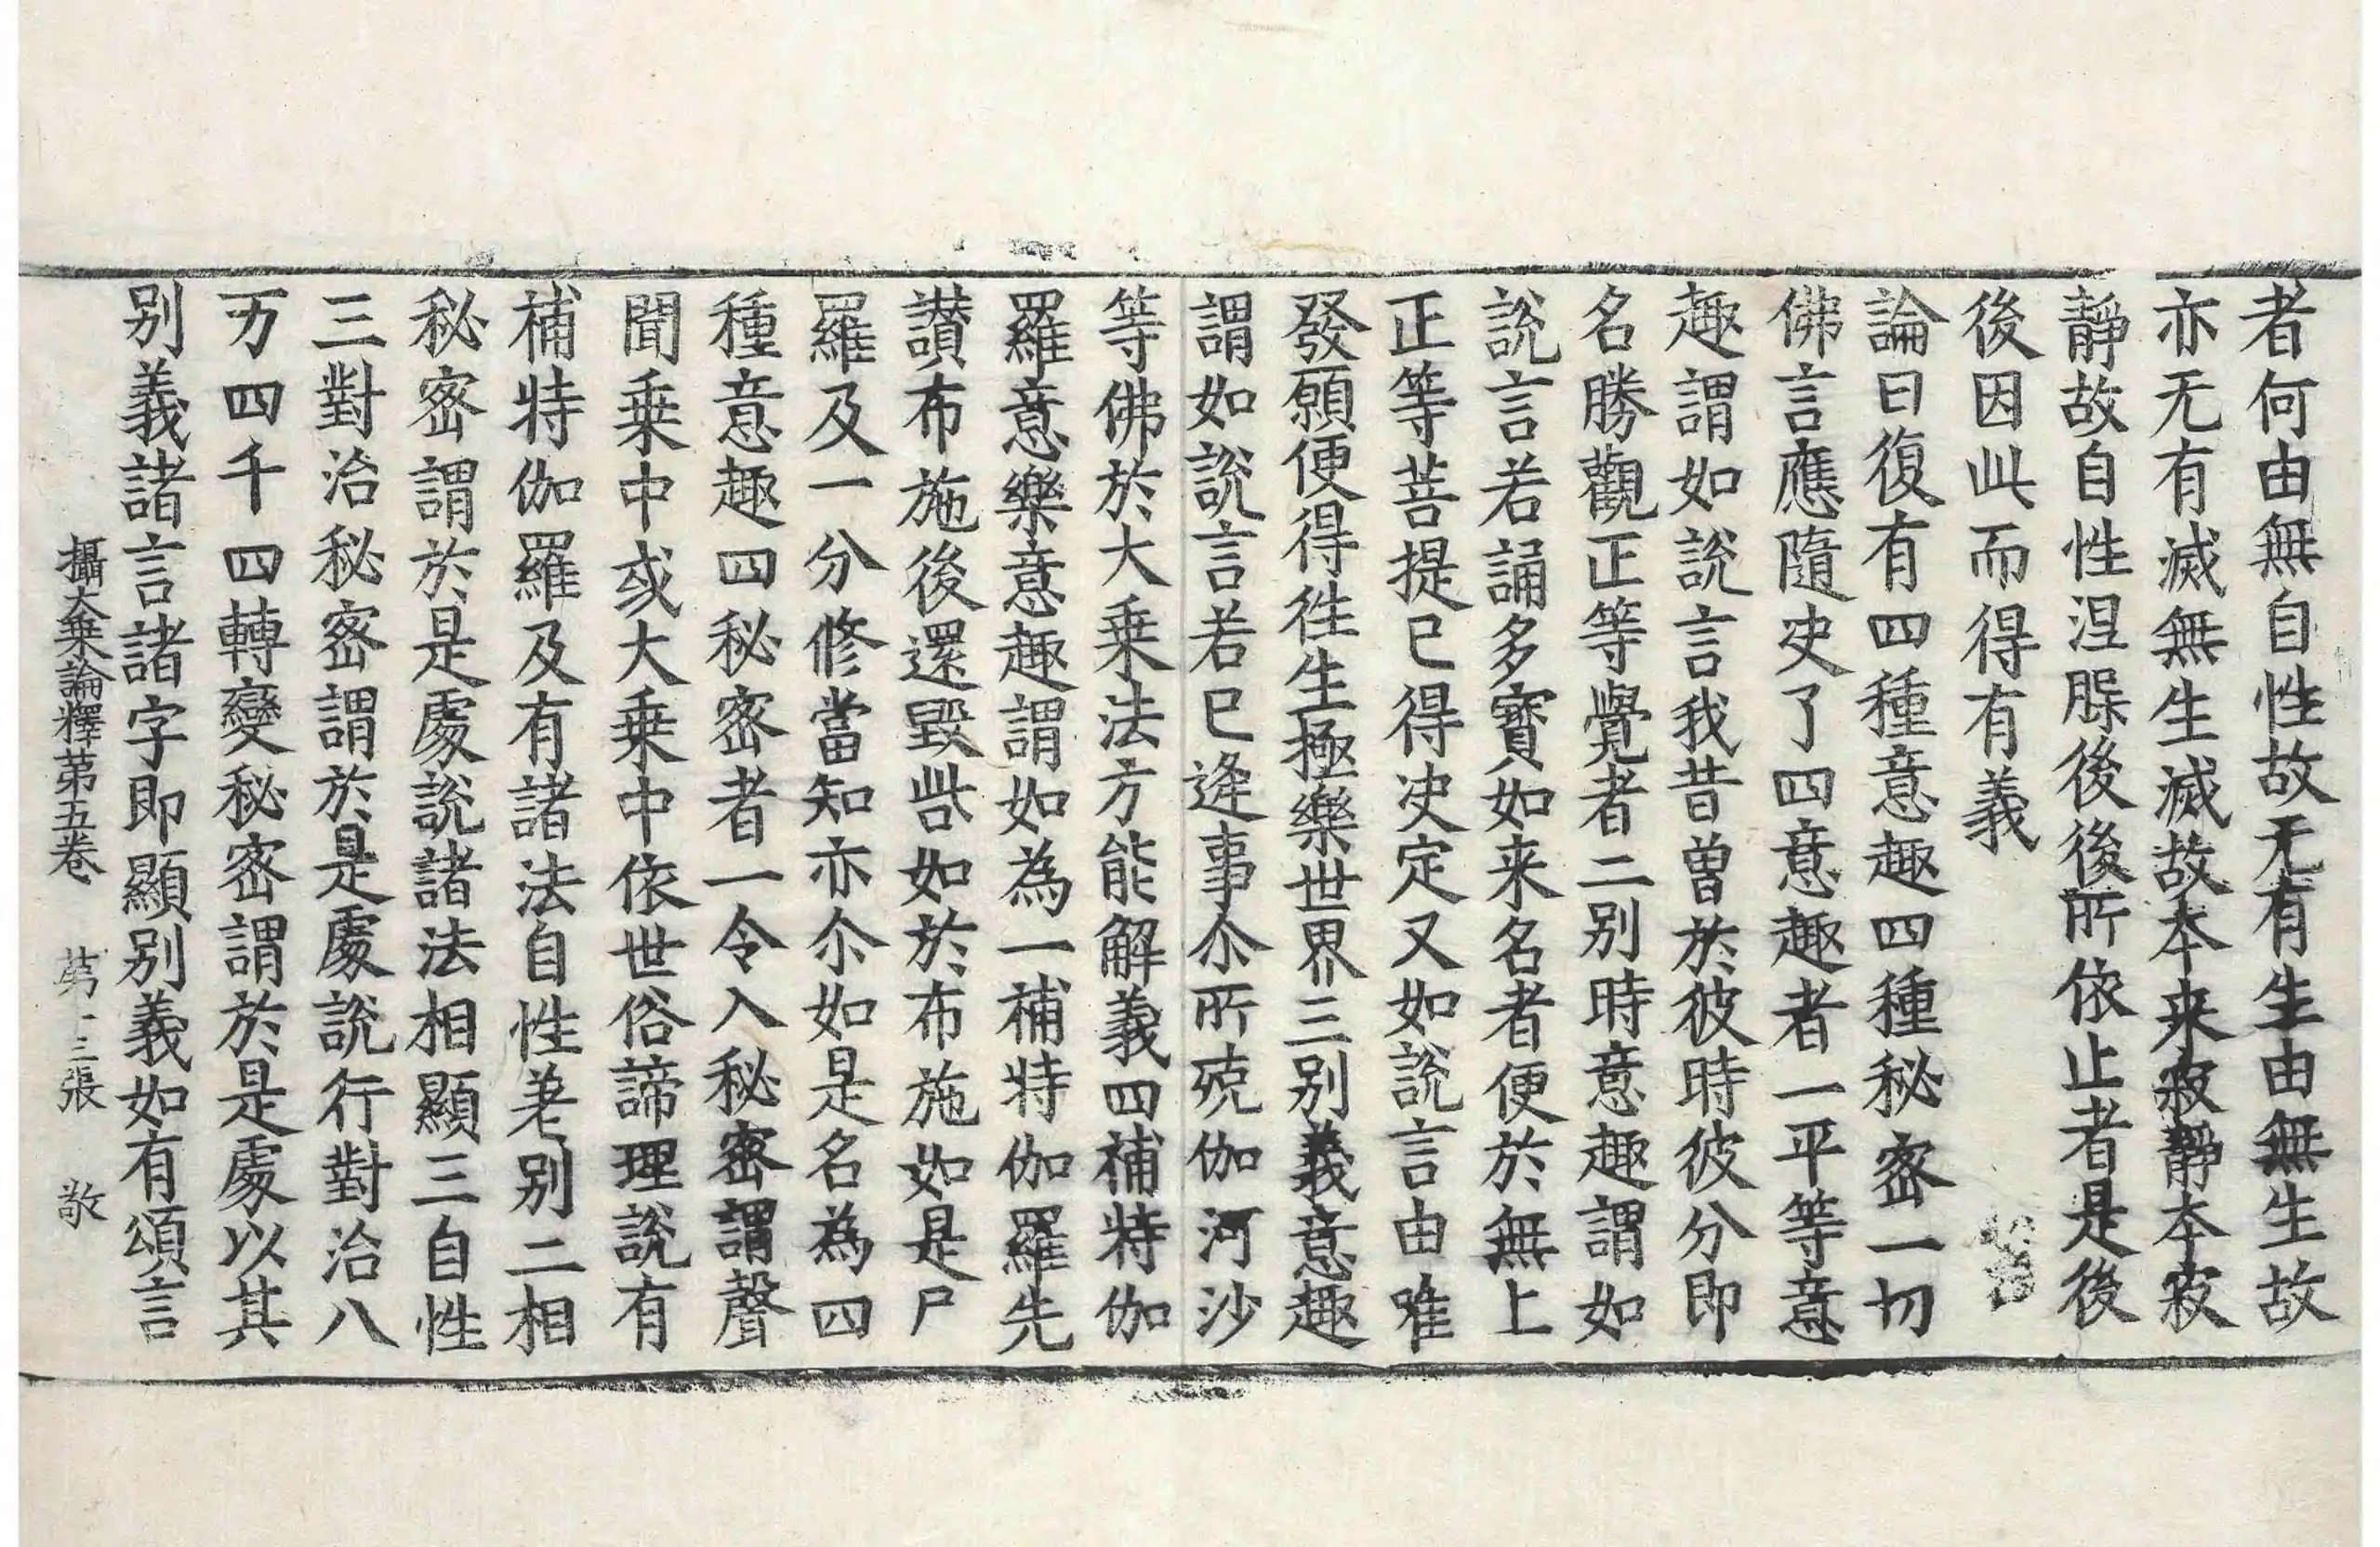 者何由無自性故无有生由無生故
亦无有滅無生滅故本来寂靜本寂
靜故自性涅脲後後所依止者是後
後因此而得有義
論曰復有四種意趣四種秘密一切
佛言應隨决了四意趣者一平等意
趣謂如說言我昔曽於彼時彼分即
名勝觀正等覺者二别時意趣謂如
說言若誦多寶如来名者便於無上
正等菩提已得决定又如說言由唯
發願便得徃生極樂世界三别義意趣
謂如說言若已逢事尒所殑伽河沙
等佛於大乗法方能解義四補特伽
羅意樂意趣謂如為一補特伽羅先
讃布施後還毀呰如於布施如是尸
羅及一分修當知亦尒如是名為四
種意趣四秘密者一令入秘密謂聲
聞乗中或大乗中依世俗諦理說有
補特伽羅及有諸法自性差别二相
秘密謂於是處說諸法相顯三自性
三對治秘密謂於是處說行對治八
万四千四轉變秘密謂於是處以其
别義諸言諸字即顯别義如有頌言
攝大乗論釋第五卷 第十三張 敬